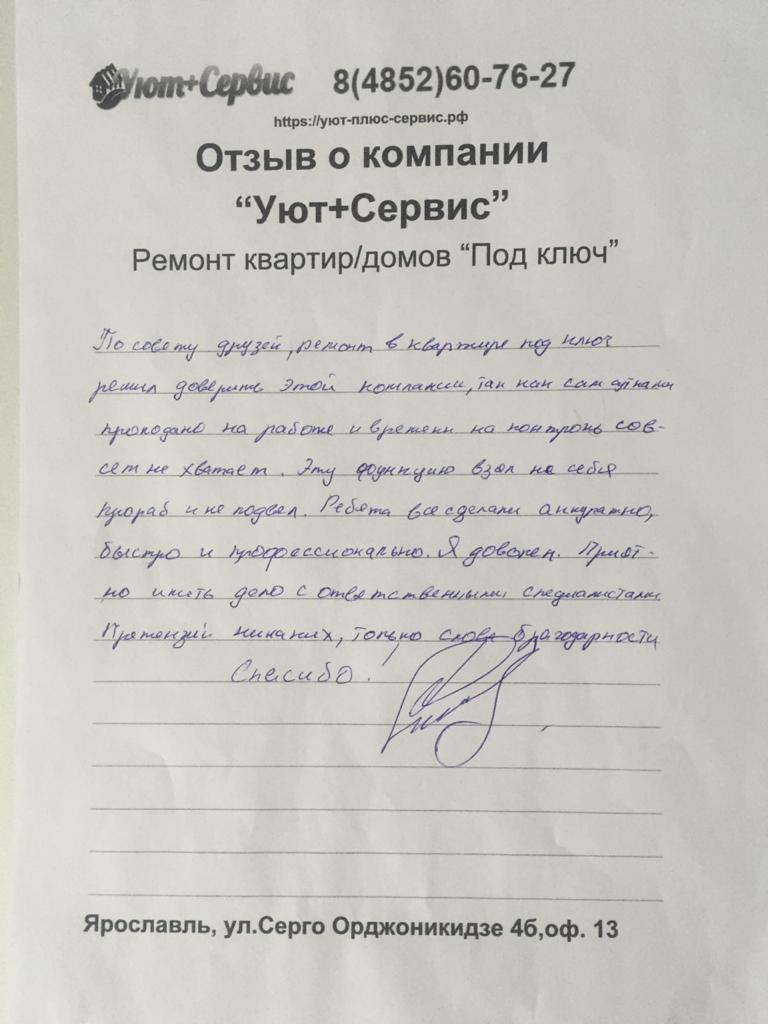 Уют+Сервис 8(4852)60-76-27
https://уют-плюс-сервис.рф
Отзыв о компании
“Уют+Сервис”
Ремонт квартир/домов “Под ключ”
По совету друзей, ремонт в квартире под ключ
решил доверить этой компании, так как сам сутками
пропадаю на работе и времени на контроль сов-
сем не хватает. Эту функцию взял на себя
прораб и не подвел. Ребята все сделали аккуратно,
быстро и профессионально. Я доволен. Прият-
но иметь дело с ответственными специалистами.
Претензий никаких, только слова благодарности
Спасибо!
Ярославль, ул.Серго Орджоникидзе 4б,оф. 13